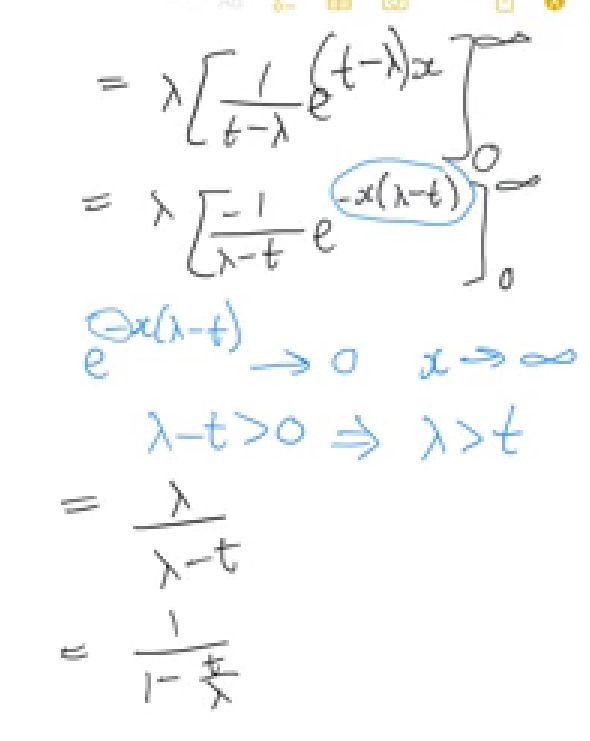 = λ[1/(t-λ) e^((t-λ)x)]_0^∞
= λ[-1/(λ-t) e^(-x(λ-t))]_0^∞
e^(-x(λ-t)) → 0 x → ∞
λ-t>0 ⇒ λ>t
= λ/(λ-t)
= 1/(1-t/λ)